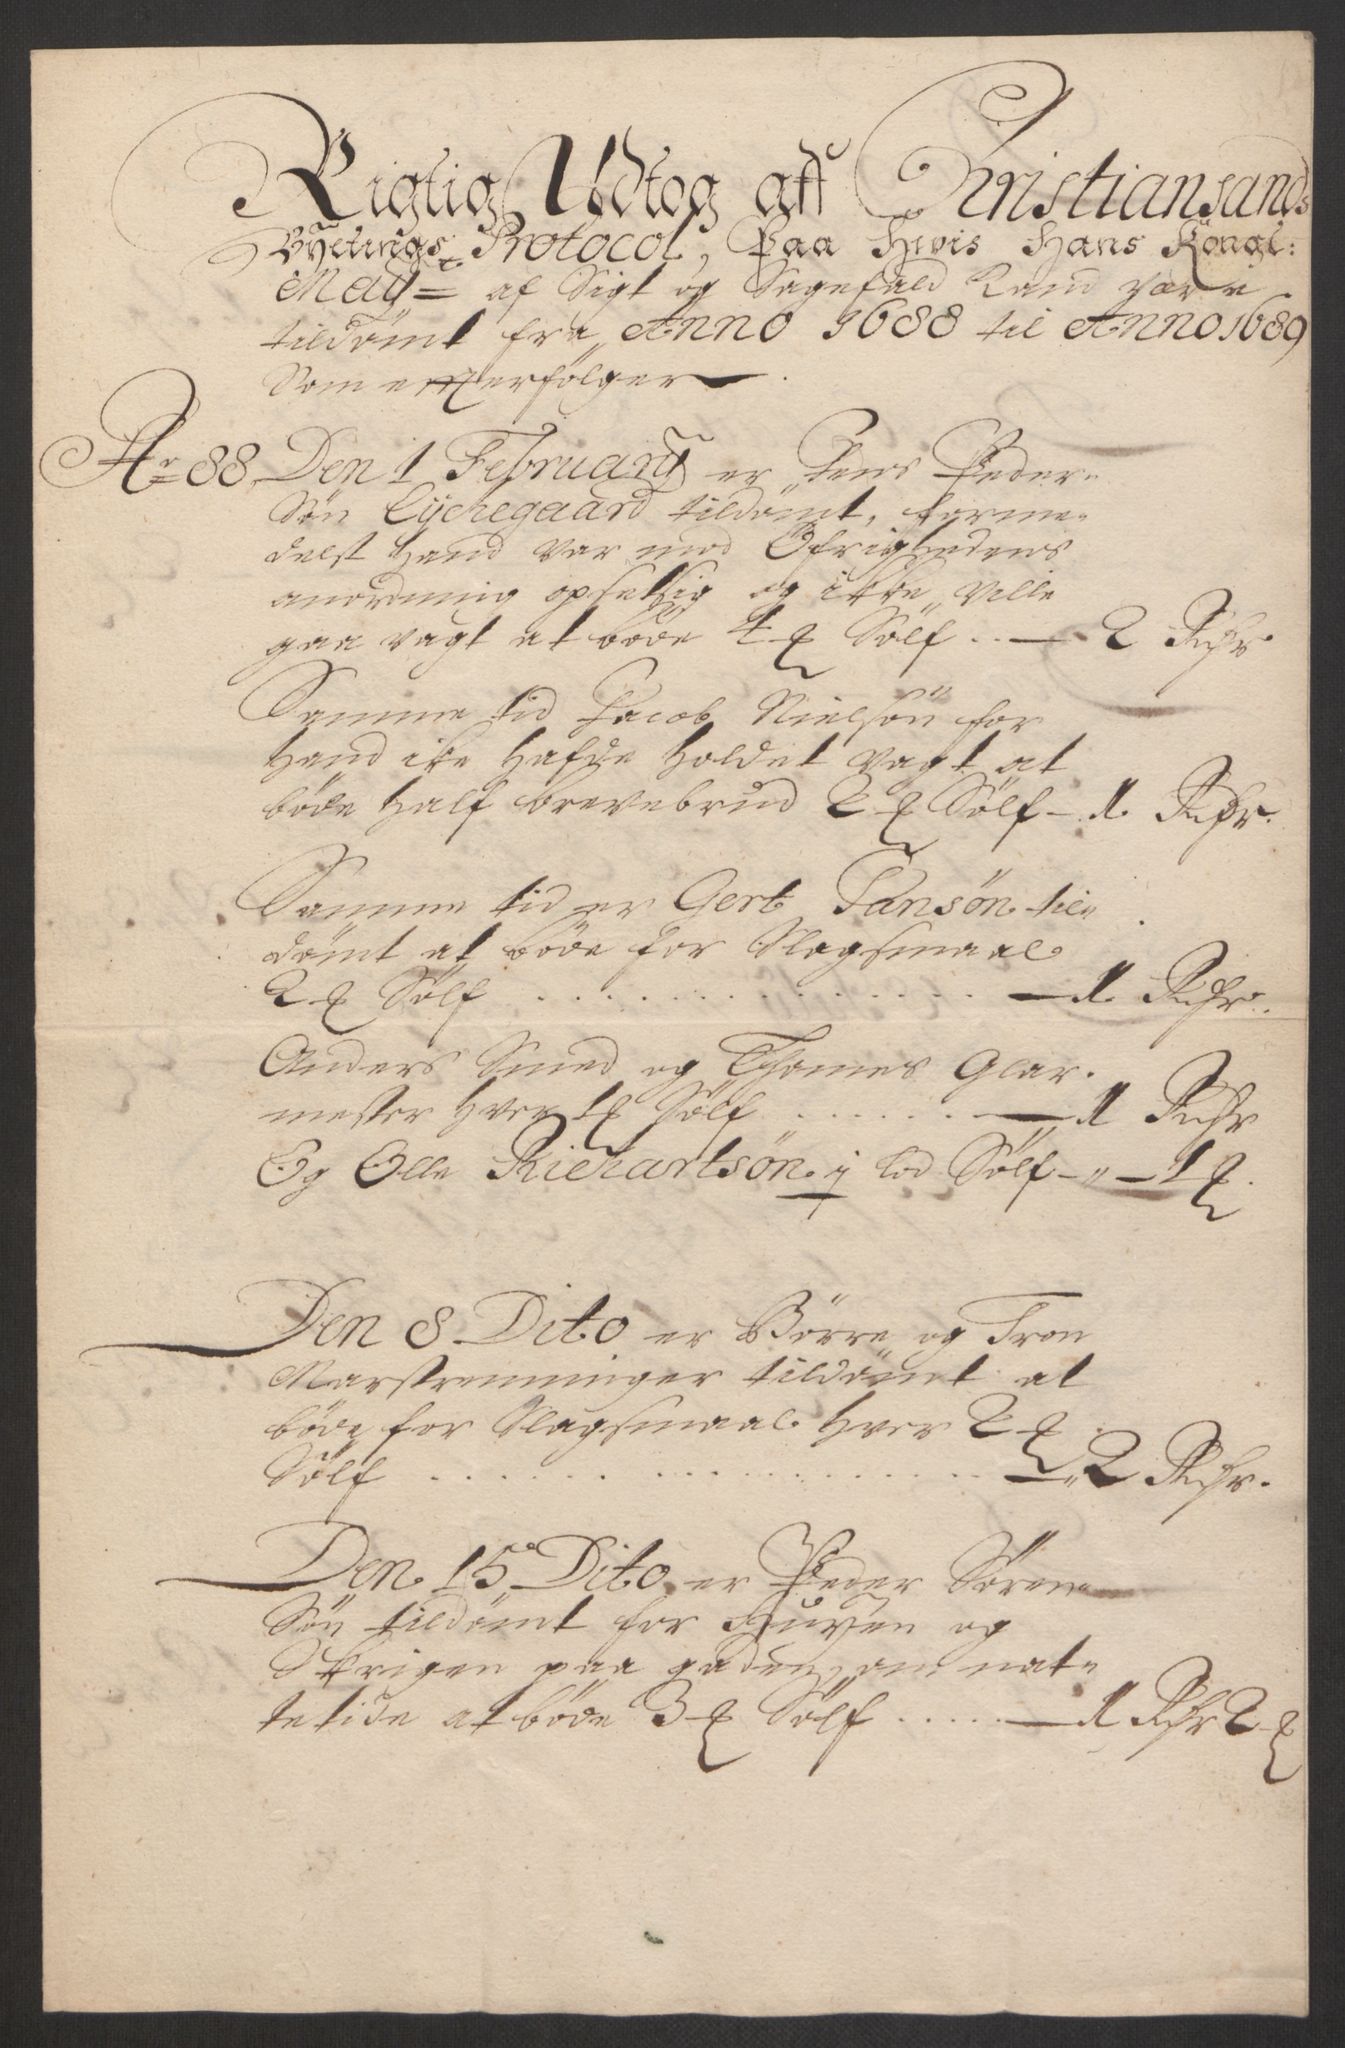 Rigtig Udtog aff Christiansands
Byetings Protocol, Paa Hvis Hans Kongl:
May:t af Sigt og Sagefald Kand være
tildömt fra Anno 1688 til Anno 1689
Som efterfölger
Ar 88 Den 1 Februarÿ er Jens Peder-
Sön Lyckegaard tildömt, forme-
delst hand var mod Öfrighedens
anordning opsetzig og ikke ville
gaa vagt at böde 4 Lod Sölf .. 2 Rdr
Samme tid Jacob Nielsön for
hand ike hafde holdet vagt at
böde half brevebrud 2 Lod Sölf - 1 Rdr.
Samme tid er Gert Jansön til-
dömt at böde for Slagsmaal
2 Lod Sölf . . . . . . 1 Rdr.
Anders Smed og Thomes Glar-
mester hver 1 Lod Sölf . . . . . 1 Rdr
Og Olle Richartsön i lod Sölf - " - 1 Lod
Den 8 Dito er Börre og Tron
Marstrenninger tildömt at
böde for Slagsmaal hver 2 Lod
Sölf . . . . . . 2 Rdr.
Den 15 Dito er Peder Sören-
Sön tildömt for Huÿen og
Skrigen paa gaden om nat-
tetide at böde 3 Lod Sölf . . . . . 1 Rdr 2 Lod